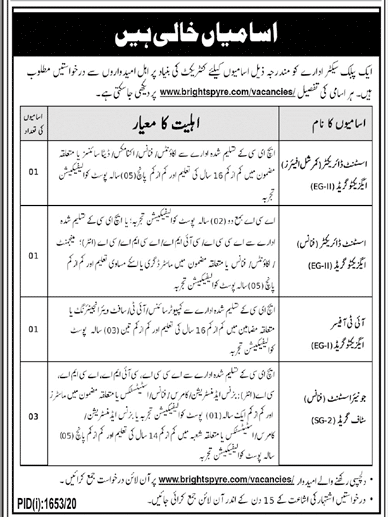 اسامیاں خالی ہیں
ایک پبلک سیکٹر ادارے کو مندرجہ ذیل اسامیوں کیلئے کنٹریکٹ کی بنیاد پر اہل امیدواروں سے درخواستیں مطلوب
ہیں۔ ہر اسامی کی تفصیل www.brightspyre.com/vacancies/ پر دیکھی جاسکتی ہے۔
اسامیوں کا نام
اہلیت کا معیار
اسامیوں کی تعداد
اسسٹنٹ ڈائریکٹر (کمرشل افیئرز)
ایگزیکٹو گریڈ (EG-II)
ایچ ای سی کے تسلیم شدہ ادارے سے اکاؤنٹس/ فنانس/ اکنامکس/ ڈیٹا سائنسز یا متعلقہ
مضمون میں کم از کم 16 سال کی تعلیم اور کم از کم پانچ (05) سالہ پوسٹ کوالیفیکیشن
تجربہ
01
اسسٹنٹ ڈائریکٹر (فنانس)
ایگزیکٹو گریڈ (EG-II)
اے سی اے بمع دو (02) سالہ پوسٹ کوالیفیکیشن تجربہ؛ یا ایچ ای سی کے تسلیم شدہ
ادارے سے اے سی سی اے/ سی آئی ایم اے/ اے سی ایم اے/ سی اے (انٹر)؛ مینجمنٹ
/ اکاؤنٹس/ فنانس یا متعلقہ مضمون میں ماسٹر ڈگری یا اسکے مساوی تعلیم اور کم از کم
پانچ (05) سالہ پوسٹ کوالیفیکیشن تجربہ
01
آئی ٹی آفیسر
ایگزیکٹو گریڈ (EG-I)
ایچ ای سی کے تسلیم شدہ ادارے سے کمپیوٹر سائنس/ آئی ٹی/ سافٹ ویئر انجینئرنگ یا
متعلقہ مضامین میں کم از کم 16 سال کی تعلیم اور کم از کم تین (03) سالہ پوسٹ
کوالیفیکیشن تجربہ
01
جونیئر اسسٹنٹ (فنانس)
سٹاف گریڈ (SG-2)
ایچ ای سی کے تسلیم شدہ ادارے سے اے سی سی اے، سی آئی ایم اے، اے سی ایم اے،
سی اے (انٹر)؛ بزنس ایڈمنسٹریشن/ کامرس/ اسٹیٹسٹکس یا متعلقہ مضمون میں ماسٹرز
اور کم از کم ایک سالہ (01) پوسٹ کوالیفیکیشن تجربہ یا بزنس ایڈمنسٹریشن/
کامرس/ اسٹیٹسٹکس یا متعلقہ شعبہ میں کم از کم 14 سال کی تعلیم اور کم از کم پانچ (05)
سالہ پوسٹ کوالیفیکیشن تجربہ
03
• دلچسپی رکھنے والے امیدوار www.brightspyre.com/vacancies/ پر آن لائن درخواست جمع کرائیں۔
• درخواستیں اشتہار کی اشاعت کے 15 دن کے اندر آن لائن جمع کرائی جائیں۔
PID(i):1653/20